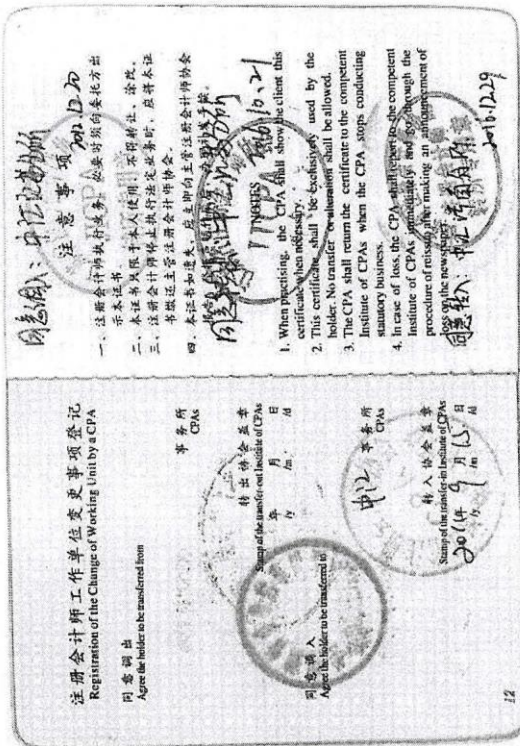 注册会计师工作单位变更事项登记
Registration of the Change of Working Unit by a CPA
同意调出
Agree the holder to be transferred from
事务所
CPAs
转出协会盖章
Stamp of the transfer-out Institute of CPAs
年 月 日
/y /m /d
同意调入
Agree the holder to be transferred to
中汇 事务所
CPAs
转入协会盖章
Stamp of the transfer-in Institute of CPAs
2011年 9月 15日
/y /m /d
12
同意调入：中汇
注意事项
一、注册会计师执行业务，必要时须向委托方出
示本证书。
二、本证书只限于本人使用，不得转让、涂改。
三、注册会计师停止执行法定业务时，应将本证
书缴还主管注册会计师协会。
四、本证书如遗失，应立即向主管注册会计师协会
NOTES
1. When practising, the CPA shall show the client this
certificate when necessary.
2. This certificate shall be exclusively used by the
holder. No transfer or alteration shall be allowed.
3. The CPA shall return the certificate to the competent
Institute of CPAs when the CPA stops conducting
statutory business.
4. In case of loss, the CPA shall report to the competent
Institute of CPAs immediately and go through the
procedure of reissue after making an announcement of
loss on the newspaper.
同意转入：中汇
2016.12.29